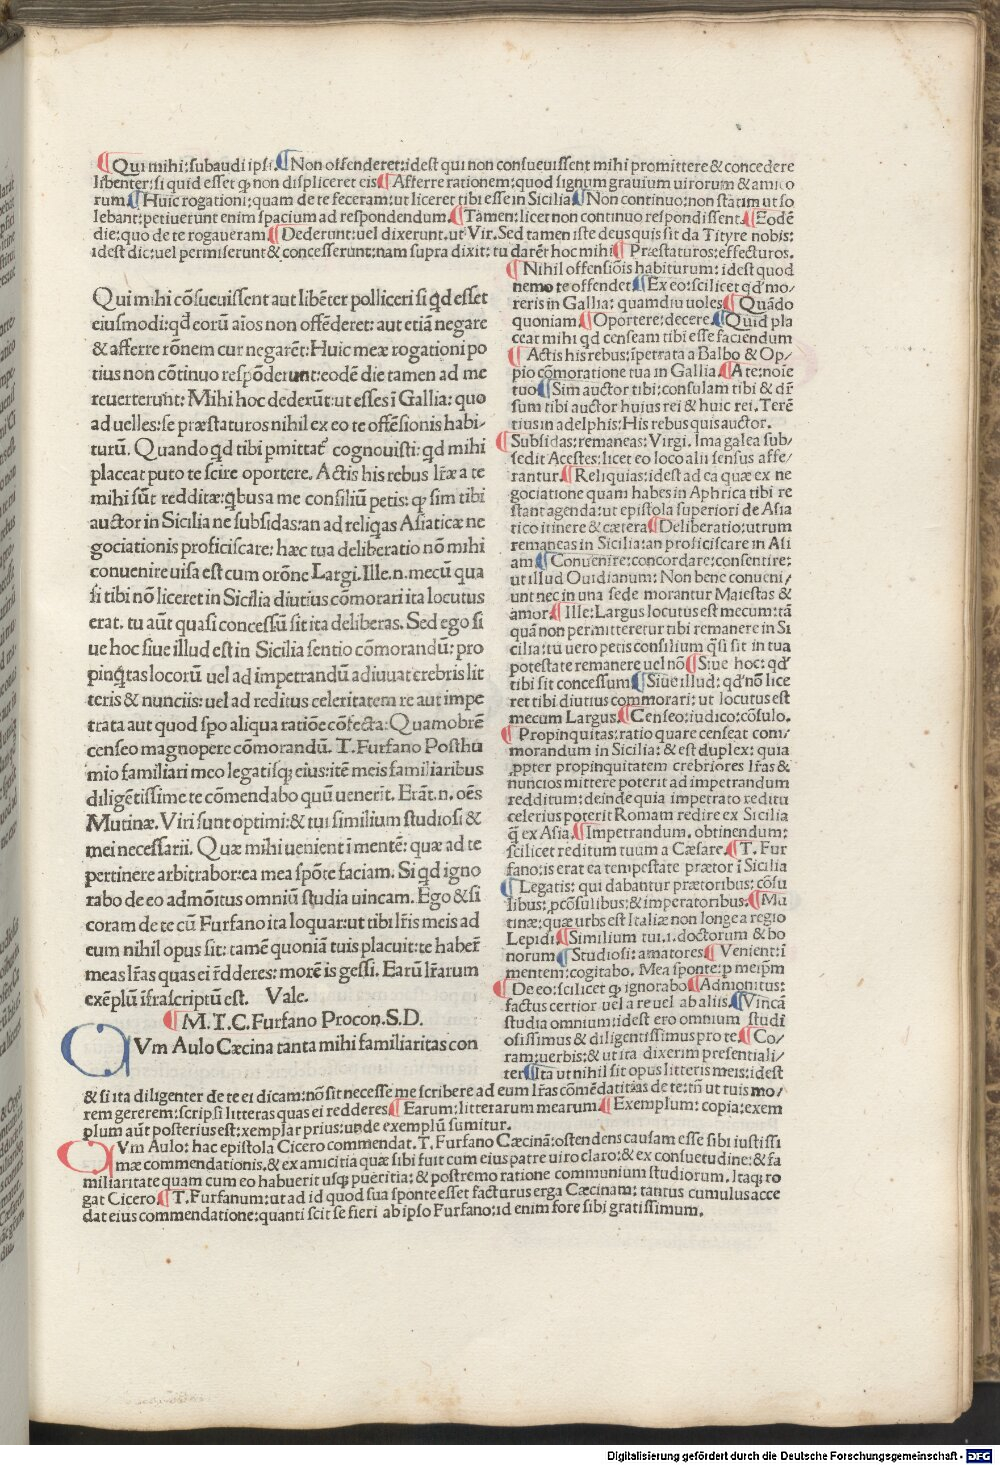 ¶Qui mihi:subaudi ipsi.¶Non offenderet:idest qui non consueuissent mihi promittere & concedere
libenter:si quid esset ꝙ non displiceret eis¶Afferre rationem:quod signum grauium uirorum & amico
rum¶Huic rogationi:quam de te feceram:ut liceret tibi esse in Sicilia¶Non continuo:non statim ut so
lebant:petiuerunt enim spacium ad respondendum.¶Tamen:licet non continuo respondissent.¶Eodē
die:quo de te rogaueram.¶Dederunt:uel dixerunt.ut Vir.Sed tamen iste deus qui sit da Tityre nobis:
idest dic:uel permiserunt & concesserunt:nam supra dixit:tu darēt hoc mihi¶Præstaturos:effecturos.
Qui mihi cōsueuissent aut libēter polliceri si qd esset
eiusmodi:qd eorū aīos non offēderet:aut etiā negare
& afferre rōnem cur negarēt:Huic meæ rogationi po
tius non cōtinuo respōderunt:eodē die tamen ad me
reuerterunt: Mihi hoc dederūt:ut esses ī Gallia: quo
ad uelles:se præstaturos nihil ex eo te offēsionis habi-
turū. Quando qd tibi pmittat cognouisti: qd mihi
placeat puto te scire oportere. Actis his rebus lr̄æ a te
mihi sūt redditæ:qbus a me consiliū petis: ꝙ sim tibi
auctor in Sicilia ne subsidas:an ad reliqas Asiaticæ ne
gociationis proficiscare: hæc tua deliberatio nō mihi
conuenire uisa est cum orōne Largi. Ille.n.mecū qua
si tibi nō liceret in Sicilia diutius cōmorari ita locutus
erat. tu aūt quasi concessū sit ita deliberas. Sed ego si
ue hoc siue illud est in Sicilia sentio cōmorandū: pro
pinqtas locorū uel ad impetrandū adiuuat crebris lit
teris & nunciis: uel ad reditus celeritatem re aut impe
trata aut quod spo aliqua ratiōe cōfecta: Quamobrē
censeo magnopere cōmorandū. T.Furfano Posthu
mio familiari meo legatisq; eius:itē meis familiaribus
diligētissime te cōmendabo quū uenerit. Erāt.n.oēs
Mutinæ. Viri sunt optimi:& tui similium studiosi &
mei necessarii. Quæ mihi uenient ī mentē: quæ ad te
pertinere arbitrabor:ea mea spōte faciam. Si qd igno
rabo de eo admōitus omniū studia uincam. Ego & si
coram de te cū Furfano ita loquar:ut tibi lr̄is meis ad
eum nihil opus sit: tamē quoniā tuis placuit:te haber̄
meas lr̄as quas ei r̄dderes: morē is gessi. Earū lr̄arum
exēplū īfrascriptū est. Vale.
¶M.T.C.Furfano Procon.S.D.
QVm Aulo Cæcina tanta mihi familiaritas con
¶Nihil offensiōis habiturum: idest quod
nemo te offendet¶Ex eo:scilicet qd mo/
reris in Gallia: quamdiu uoles¶Quādo
quoniam.¶Oportere:decere.¶Quid pla
ceat mihi qd censeam tibi esse faciendum
¶Actis his rebus:īpetrata a Balbo & Op/
pio cōmoratione tua in Gallia.¶A te:noīe
tuo¶Sim auctor tibi:consulam tibi & dr̄
sum tibi auctor huius rei & huic rei. Terē
tius in adelphis:His rebus quis auctor.
¶Subsidas:remaneas:Virgi. Ima galea sub/
sedit Acestes:licet eo loco alii sensus affe/
rantur.¶Reliquias:idest ad ea quæ ex ne
gociatione quam habes in Aphrica tibi re
stant agenda:ut epistola superiori de Asia
tico itinere & cætera¶Deliberatio:utrum
remaneas in Sicilia:an proficiscare in Asi
am¶Conuenire:concordare:consentire:
ut illud Ouidianum: Non bene conueni/
unt nec in una sede morantur Maiestas &
amor.¶Ille:Largus locutus est mecum:tā
quā non permitteretur tibi remanere in Si
cilia:tu uero petis consilium qsi sit in tua
potestate remanere uel nō¶Siue hoc: qd
tibi sit concessum¶Siue illud: qd nō lice
ret tibi diutius commorari: ut locutus est
mecum Largus.¶Censeo:iudico:cōsulo.
¶Propinquitas:ratio quare censeat com/
morandum in Sicilia: & est duplex: quia
ꝓpter propinquitatem crebriores lr̄as &
nuncios mittere poterit ad impetrandum
redditum:deinde quia impetrato reditu
celerius poterit Romam redire ex Sicilia
q̄ ex Asia.¶Impetrandum.obtinendum:
scilicet reditum tuum a Cæsare.¶T. Fur
fano:is erat ea tempestate prætor ī Sicilia
¶Legatis: qui dabantur prætoribus: cōsu
libus: pcōsulibus:& imperatoribus.¶Mu
tinæ:quæ urbs est Italiæ non longe a regio
Lepidi¶Similium tui.i.doctorum & bo
norum¶Studiosi:amatores¶Venient:ī
mentem:cogitabo. Mea sponte:p meipm
¶De eo:scilicet ꝙ ignorabo¶Admonitus:
factus certior uel a re uel ab aliis¶Vincā
studia omnium:idest ero omnium studi
osissimus & diligentissimus pro te¶Co/
ram:uerbis:& ut ita dixerim presentiali/
ter¶Ita ut nihil sit opus litteris meis:idest
& si ita diligenter de te ei dicam:nō sit necesse me scribere ad eum lr̄as cōmēdatitias de te:tn̄ ut tuis mo/
rem gererem:scripsi litteras quas ei redderes¶Earum:litterarum mearum¶Exemplum: copia:exem
plum aūt posterius est:exemplar prius:unde exemplū sumitur.
QVm Aulo: hac epistola Cicero commendat.T.Furfano Cæcinā:ostendens causam esse sibi iustissi
mæ commendationis.& ex amicitia quæ sibi fuit cum eius patre uiro claro:& ex consuetudine:& fa
miliaritate quam cum eo habuerit usq; pueritia:& postremo ratione communium studiorum.Itaq; ro
gat Cicero¶T.Furfanum:ut ad id quod sua sponte esset facturus erga Cæcinam: tantus cumulus acce
dat eius commendatione:quanti scit se fieri ab ipso Furfano:id enim fore sibi gratissimum.
Digitalisierung gefördert durch die Deutsche Forschungsgemeinschaft - DFG